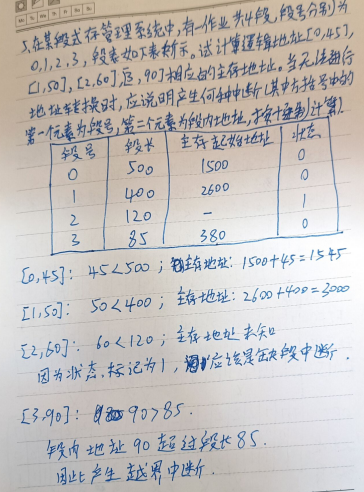 5.在某段式存管理系统中,有一作业共4段,段号分别为
0,1,2,3,段表如下表所示。试计算逻辑地址[0,45],
[1,50],[2,60],[3,90]相应的主存地址。当无法进行
地址转换时,应说明产生何种中断(其中方括号中的
第一个元素为段号,第二个元素为段内地址,按十进制计算)
段号 段长 主存起始地址 状态
0 500 1500 0
1 400 2600 0
2 120 - 1
3 85 380 0
[0,45]: 45<500; 主存地址: 1500+45=1545
[1,50]: 50<400; 主存地址: 2600+400=3000
[2,60]: 60<120; 主存地址 未知
因为状态,标记为1, 应该是缺段中断.
[3,90]: 90>85.
段内地址 90 超过段长 85.
因此产生 越界中断.